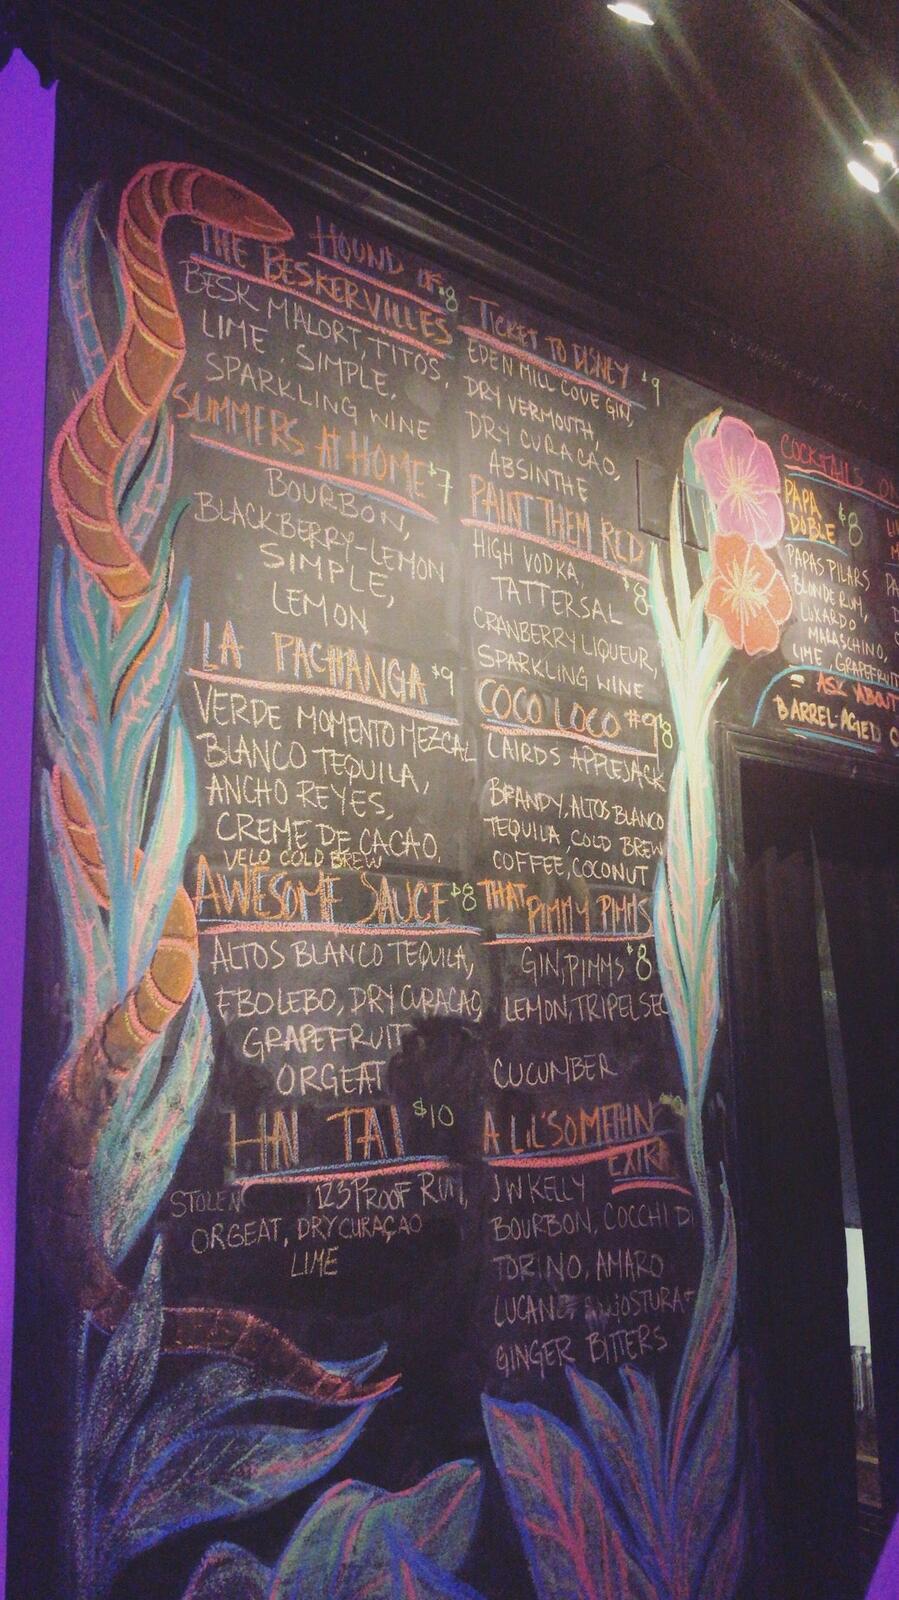 HOUND OF $8
THE BESKERVILLES
BESK MALORT, TITOS,
LIME, SIMPLE,
SPARKLING WINE
SUMMERS AT HOME $7
BOURBON,
BLACKBERRY-LEMON
SIMPLE,
LEMON
LA PACHANGA $9
VERDE MOMENTO MEZCAL
BLANCO TEQUILA,
ANCHO REYES,
CREME DE CACAO,
VELO COLD BREW
AWESOME SAUCE $8
ALTOS BLANCO TEQUILA,
EBOLEBO, DRY CURACAO,
GRAPEFRUIT
ORGEAT
HAI TAI $10
STOLEN 123 PROOF RUM,
ORGEAT, DRY CURAÇAO
LIME
TICKET TO DISNEY $9
EDEN MILL COVE GIN,
DRY VERMOUTH,
DRY CURACAO,
ABSINTHE
PAINT THEM RED
HIGH VODKA, $8
TATTERSAL
CRANBERRY LIQUEUR,
SPARKLING WINE
COCO LOCO #9 $8
LAIRDS APPLEJACK
BRANDY, ALTOS BLANCO
TEQUILA, COLD BREW
COFFEE, COCONUT
THAT PIMMY PIMMS
GIN, PIMMS $8
LEMON, TRIPEL SEC
CUCUMBER
A LIL' SOMETHIN'
EXTRA
JW KELLY
BOURBON, COCCHI DI
TORINO, AMARO
LUCANO, ANGOSTURA +
GINGER BITTERS
COCKTAILS ON
PAPA
DOBLE $8
PAPAS PILARS
BLONDE RUM,
LUXARDO
MARASCHINO,
LIME, GRAPEFRUIT
= ASK ABOUT
BARREL-AGED